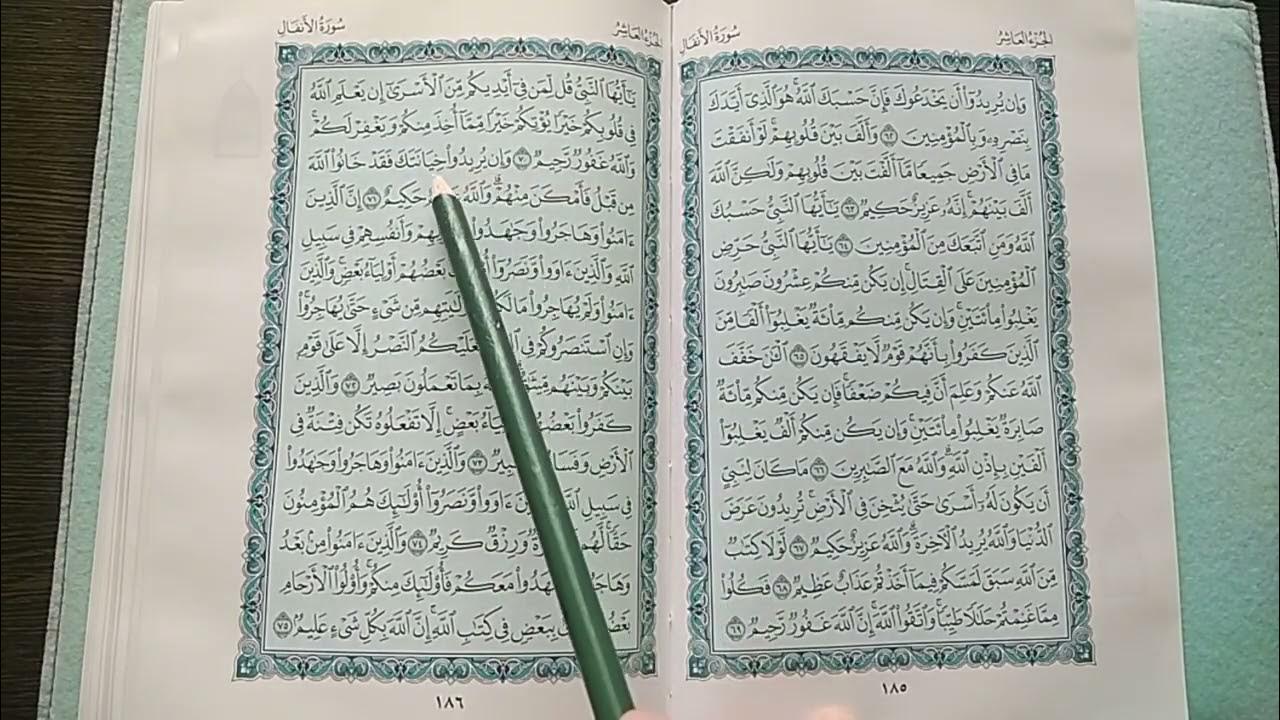 سُورَةُ الأَنفَالِ
الجُزءُ العَاشِرُ
وَإِن يُرِيدُوٓاْ أَن يَخۡدَعُوكَ فَإِنَّ حَسۡبَكَ ٱللَّهُۚ هُوَ ٱلَّذِيٓ أَيَّدَكَ
بِنَصۡرِهِۦ وَبِٱلۡمُؤۡمِنِينَ ٦٢ وَأَلَّفَ بَيۡنَ قُلُوبِهِمۡۚ لَوۡ أَنفَقۡتَ
مَا فِي ٱلۡأَرۡضِ جَمِيعٗا مَّآ أَلَّفۡتَ بَيۡنَ قُلُوبِهِمۡ وَلَٰكِنَّ ٱللَّهَ
أَلَّفَ بَيۡنَهُمۡۚ إِنَّهُۥ عَزِيزٌ حَكِيمٞ ٦٣ يَٰٓأَيُّهَا ٱلنَّبِيُّ حَسۡبُكَ
ٱللَّهُ وَمَنِ ٱتَّبَعَكَ مِنَ ٱلۡمُؤۡمِنِينَ ٦٤ يَٰٓأَيُّهَا ٱلنَّبِيُّ حَرِّضِ
ٱلۡمُؤۡمِنِينَ عَلَى ٱلۡقِتَالِۚ إِن يَكُن مِّنكُمۡ عِشۡرُونَ صَٰبِرُونَ
يَغۡلِبُواْ مِاْئَتَيۡنِۚ وَإِن يَكُن مِّنكُم مِّاْئَةٞ يَغۡلِبُوٓاْ أَلۡفٗا مِّنَ
ٱلَّذِينَ كَفَرُواْ بِأَنَّهُمۡ قَوۡمٞ لَّا يَفۡقَهُونَ ٦٥ ٱلۡـَٰٔنَ خَفَّفَ
ٱللَّهُ عَنكُمۡ وَعَلِمَ أَنَّ فِيكُمۡ ضَعۡفٗاۚ فَإِن يَكُن مِّنكُم مِّاْئَةٞ
صَابِرَةٞ يَغۡلِبُواْ مِاْئَتَيۡنِۚ وَإِن يَكُن مِّنكُمۡ أَلۡفٞ يَغۡلِبُوٓاْ
أَلۡفَيۡنِ بِإِذۡنِ ٱللَّهِۗ وَٱللَّهُ مَعَ ٱلصَّٰبِرِينَ ٦٦ مَا كَانَ لِنَبِيٍّ
أَن يَكُونَ لَهُۥٓ أَسۡرَىٰ حَتَّىٰ يُثۡخِنَ فِي ٱلۡأَرۡضِۚ تُرِيدُونَ عَرَضَ
ٱلدُّنۡيَا وَٱللَّهُ يُرِيدُ ٱلۡأٓخِرَةَۗ وَٱللَّهُ عَزِيزٌ حَكِيمٞ ٦٧ لَّوۡلَا كِتَٰبٞ
مِّنَ ٱللَّهِ سَبَقَ لَمَسَّكُمۡ فِيمَآ أَخَذۡتُمۡ عَذَابٌ عَظِيمٞ ٦٨ فَكُلُواْ
مِمَّا غَنِمۡتُمۡ حَلَٰلٗا طَيِّبٗاۚ وَٱتَّقُواْ ٱللَّهَۚ إِنَّ ٱللَّهَ غَفُورٞ رَّحِيمٞ ٦٩
١٨٥
سُورَةُ الأَنفَالِ
الجُزءُ العَاشِرُ
يَٰٓأَيُّهَا ٱلنَّبِيُّ قُل لِّمَن فِيٓ أَيۡدِيكُم مِّنَ ٱلۡأَسۡرَىٰٓ إِن يَعۡلَمِ ٱللَّهُ
فِي قُلُوبِكُمۡ خَيۡرٗا يُؤۡتِكُمۡ خَيۡرٗا مِّمَّآ أُخِذَ مِنكُمۡ وَيَغۡفِرۡ لَكُمۡۚ
وَٱللَّهُ غَفُورٞ رَّحِيمٞ ٧٠ وَإِن يُرِيدُواْ خِيَانَتَكَ فَقَدۡ خَانُواْ ٱللَّهَ
مِن قَبۡلُ فَأَمۡكَنَ مِنۡهُمۡۗ وَٱللَّهُ حَكِيمٌ ٧١ إِنَّ ٱلَّذِينَ
ءَامَنُواْ وَهَاجَرُواْ وَجَٰهَدُواْ وَأَنفُسِهِمۡ فِي سَبِيلِ
ٱللَّهِ وَٱلَّذِينَ ءَاوَواْ وَّنَصَرُوٓاْ بَعۡضُهُمۡ أَوۡلِيَآءُ بَعۡضٖۚ وَٱلَّذِينَ
ءَامَنُواْ وَلَمۡ يُهَاجِرُواْ مَا لَكُم وَلَٰيَتِهِم مِّن شَيۡءٍ حَتَّىٰ يُهَاجِرُواْۚ
وَإِنِ ٱسۡتَنصَرُوكُمۡ فِي فَعَلَيۡكُمُ ٱلنَّصۡرُ إِلَّا عَلَىٰ قَوۡمِۭ
بَيۡنَكُمۡ وَبَيۡنَهُم بِمَا تَعۡمَلُونَ بَصِيرٞ ٧٢ وَٱلَّذِينَ
كَفَرُواْ بَعۡضُهُمۡ أَوۡلِيَآءُ بَعۡضٍۚ إِلَّا تَفۡعَلُوهُ تَكُن فِتۡنَةٞ فِي
ٱلۡأَرۡضِ وَفَسَادٞ كَبِيرٞ ٧٣ وَٱلَّذِينَ ءَامَنُواْ وَهَاجَرُواْ وَجَٰهَدُواْ
فِي سَبِيلِ ٱللَّهِ ءَاوَواْ وَّنَصَرُوٓاْ أُوْلَٰٓئِكَ هُمُ ٱلۡمُؤۡمِنُونَ
حَقّٗاۚ لَّهُم وَرِزۡقٞ كَرِيمٞ ٧٤ وَٱلَّذِينَ ءَامَنُواْ مِنۢ بَعۡدُ
وَهَاجَرُواْ وَجَٰهَدُواْ مَعَكُمۡ فَأُوْلَٰٓئِكَ مِنكُمۡۚ وَأُوْلُواْ ٱلۡأَرۡحَامِ
بَعۡضُهُمۡ بِبَعۡضٖ فِي كِتَٰبِ ٱللَّهِۚ إِنَّ ٱللَّهَ بِكُلِّ شَيۡءٍ عَلِيمُۢ ٧٥
١٨٦